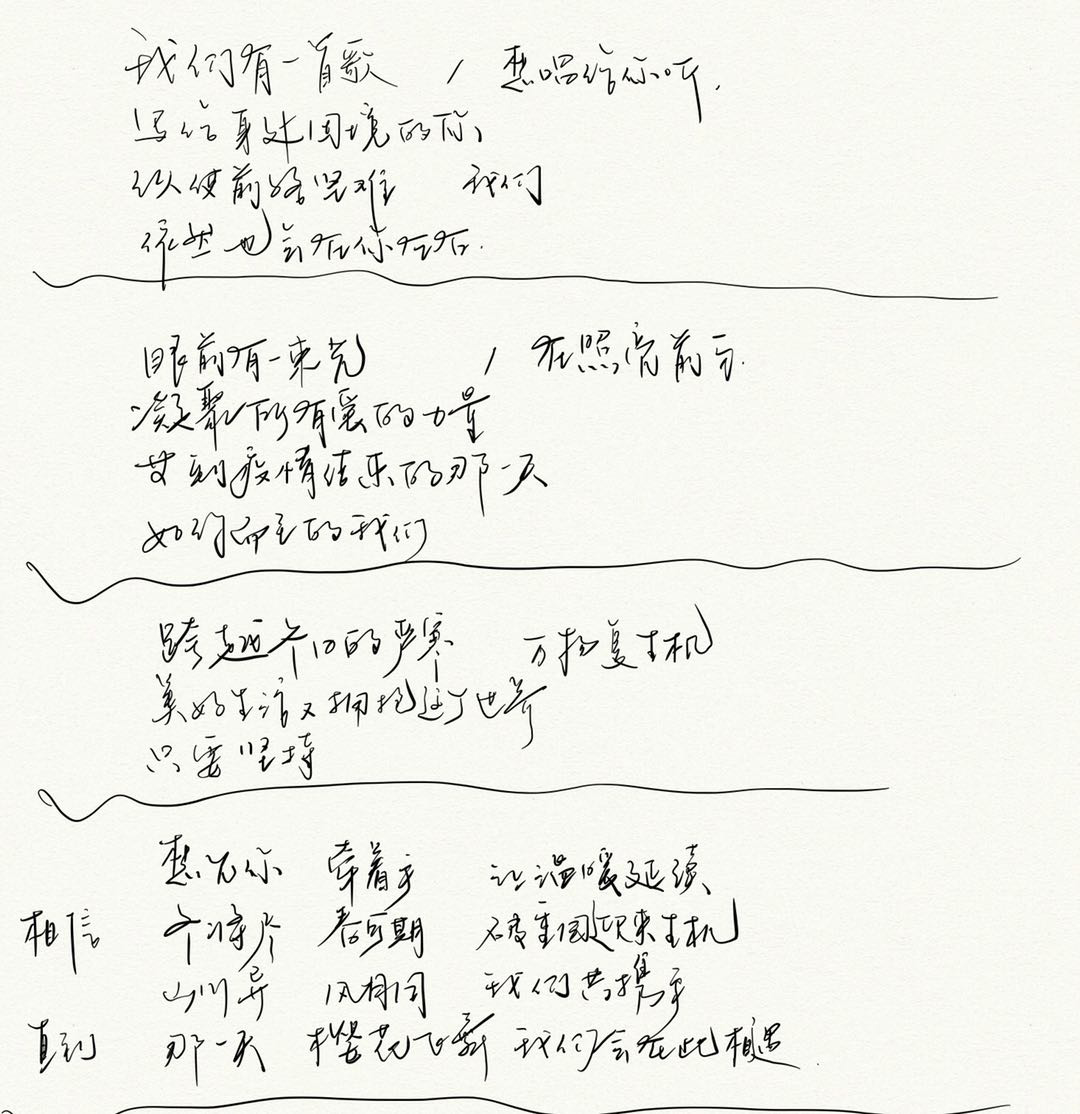 我们有一首歌 , 想唱给你听,
写给身处困境的你,
纵使前路坚难 我们
依然也会在你左右.
眼前有一束光 , 在照亮前方.
凝聚所有爱的力量
等到疫情结束的那一天
如约而至的我们
跨越冬日的严寒 万物复生机
美好生活又拥抱这个世界
只要坚持
想见你 牵着手 让温暖延续
相信 冬将尽 春可期 破重围迎来生机
山川异 风月同 我们共携手
直到 那一天 樱花飞舞 我们会在此相遇.